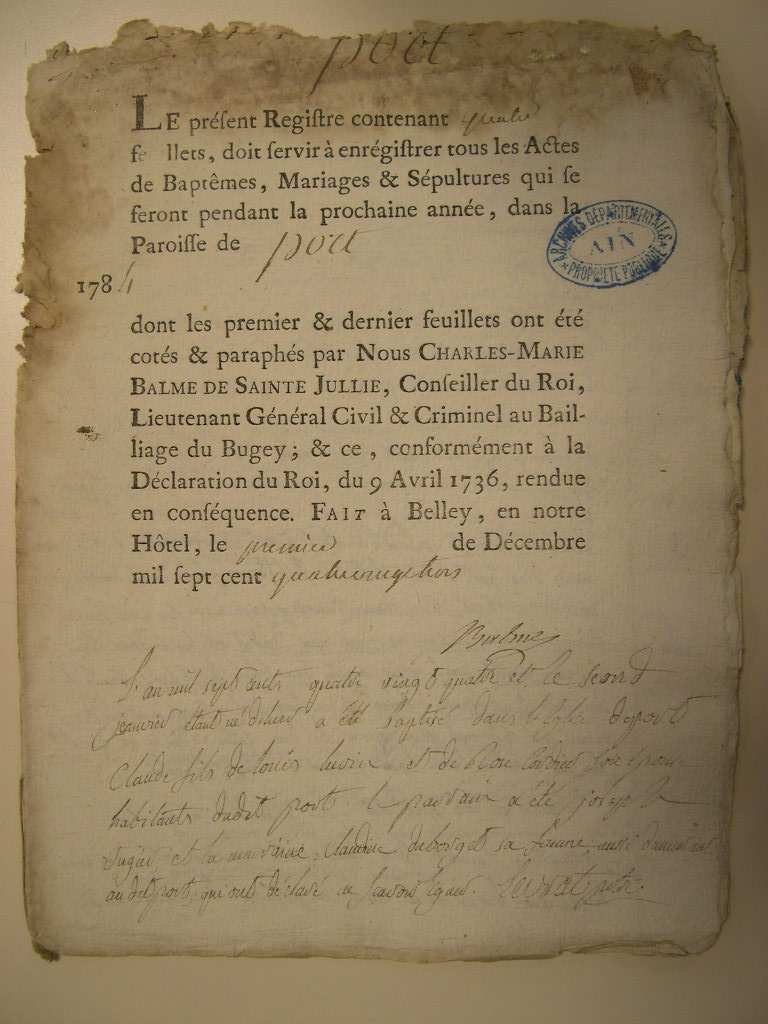 port
LE préſent Regiſtre contenant quatre
fe llets, doit ſervir à enrégiſtrer tous les Actes
de Baptêmes, Mariages & Sépultures qui ſe
feront pendant la prochaine année, dans la
Paroiſſe de port
ARCHIVES DEPARTEMENTALES
AIN
PROPRIETE PUBLIQUE
1784
dont les premier & dernier feuillets ont été
cotés & paraphés par Nous CHARLES-MARIE
BALME DE SAINTE JULLIE, Conſeiller du Roi,
Lieutenant Général Civil & Criminel au Bail-
liage du Bugey; & ce, conformément à la
Déclaration du Roi, du 9 Avril 1736, rendue
en conſéquence. FAIT à Belley, en notre
Hôtel, le premier de Décembre
mil ſept cent quatrevingttrois
Balme
L'an mil sept cents quatre vingt quatre et le second
janvier étant né a été baptisé dans l'église de port
Claude fils de louis et de son epouse
habitants dudit port le parrain a été joseph
et la marraine Claudine sa femme, aussi
audit port, qui ont déclaré ne scavoir signer.